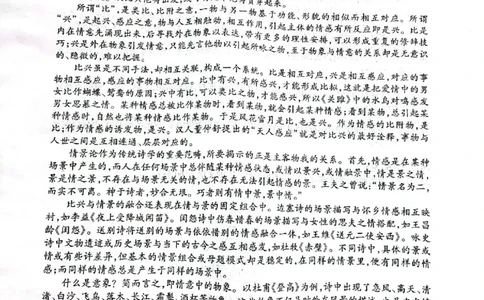 所谓"比",是类比、比附之意,一物与另一物基于功能、形貌的相似而相互对应。所谓
"兴",是起兴、感应之意,物与人互相触动,相互作用,引起主体的情感有所反应即是兴。比是
内在情意先涌现出来,后寻找外在物象以表达,带有更多的理性安排,可以形成重复的修辞技
巧;兴是外在物象引发情意,只能先言他物以引起所咏之物,至于物象与情意的关系却是无意识
的、隐微的,难以把握。
比兴虽是不同手法,却相互关联,构成一个系统。比是相互对应,兴是相互感应,对应的事
物相互感应,感应的事物相互对应。比中有兴,有所感兴,才能形成比拟,这就是把爱情中的男
女比作蝴蝶、鸳鸯的原因;兴中有比,可以类比之物,才能感兴,所以《关雎》中的水鸟对鸣感发
男女思慕之情。某种情感总被比作某物时,看到某物,就会引起某种情感;看到某物,总引起某
种情感时,自然也将某种情感比作某物。于是风花雪月是比,也是兴。作为情感的比附物,是
比;作为情感的诱发物,是兴。汉人董仲舒提出的"天人感应"就是对比兴的最好诠释,事物与
人世之间是互相连通、层层对应的。
情景论作为传统诗学的重要范畴,所要揭示的正是主客物我的关系。首先,情感是在某种
场景中产生的,而人在任何场景中总伴随某种情感状态,或情以景兴,或情融景中,情是景之情,
景是情之景,不存在与场景无关的情,也不存在无法引起情感的景。王夫之曾说:"情景名为二,
而实不可离。神于诗者,妙合无垠。巧者则有情中景,景中情。"
比兴与情景的融合还表现在情与景的固定组合中。边塞诗的场景描写与怀乡情感相互映
衬,如李益《夜上受降城闻笛》。闺怨诗中伤春惜春的场景描写与女性的思夫之情搭配,如王昌
龄《闺怨》。送别诗将送别的场景与依依惜别的情感融合一体,如王维《送元二使安西》。咏史
诗中文物遗迹或历史场景与当下的古今之感互相感发,如杜牧《赤壁》。不同诗中,具体的景或
情或有些许差异,但基本的情景组合或母题模式却是稳定的,在同样的情景里,便有同样的情
感;而同样的情感总是产生于同样的场景中。
什么是意象?简而言之,即情意中的物象。以杜甫《登高》为例,诗中出现了急风、高天、清